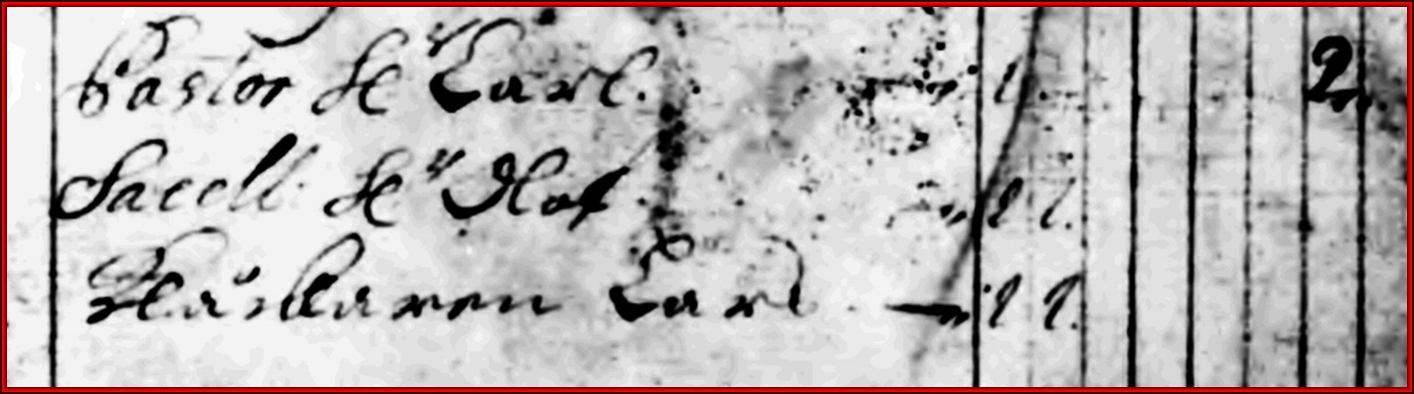 Pastor Hr Carl. 1. 2
Sacell. Hr Olof 1 1.
Klåckaren Carl 1 1.